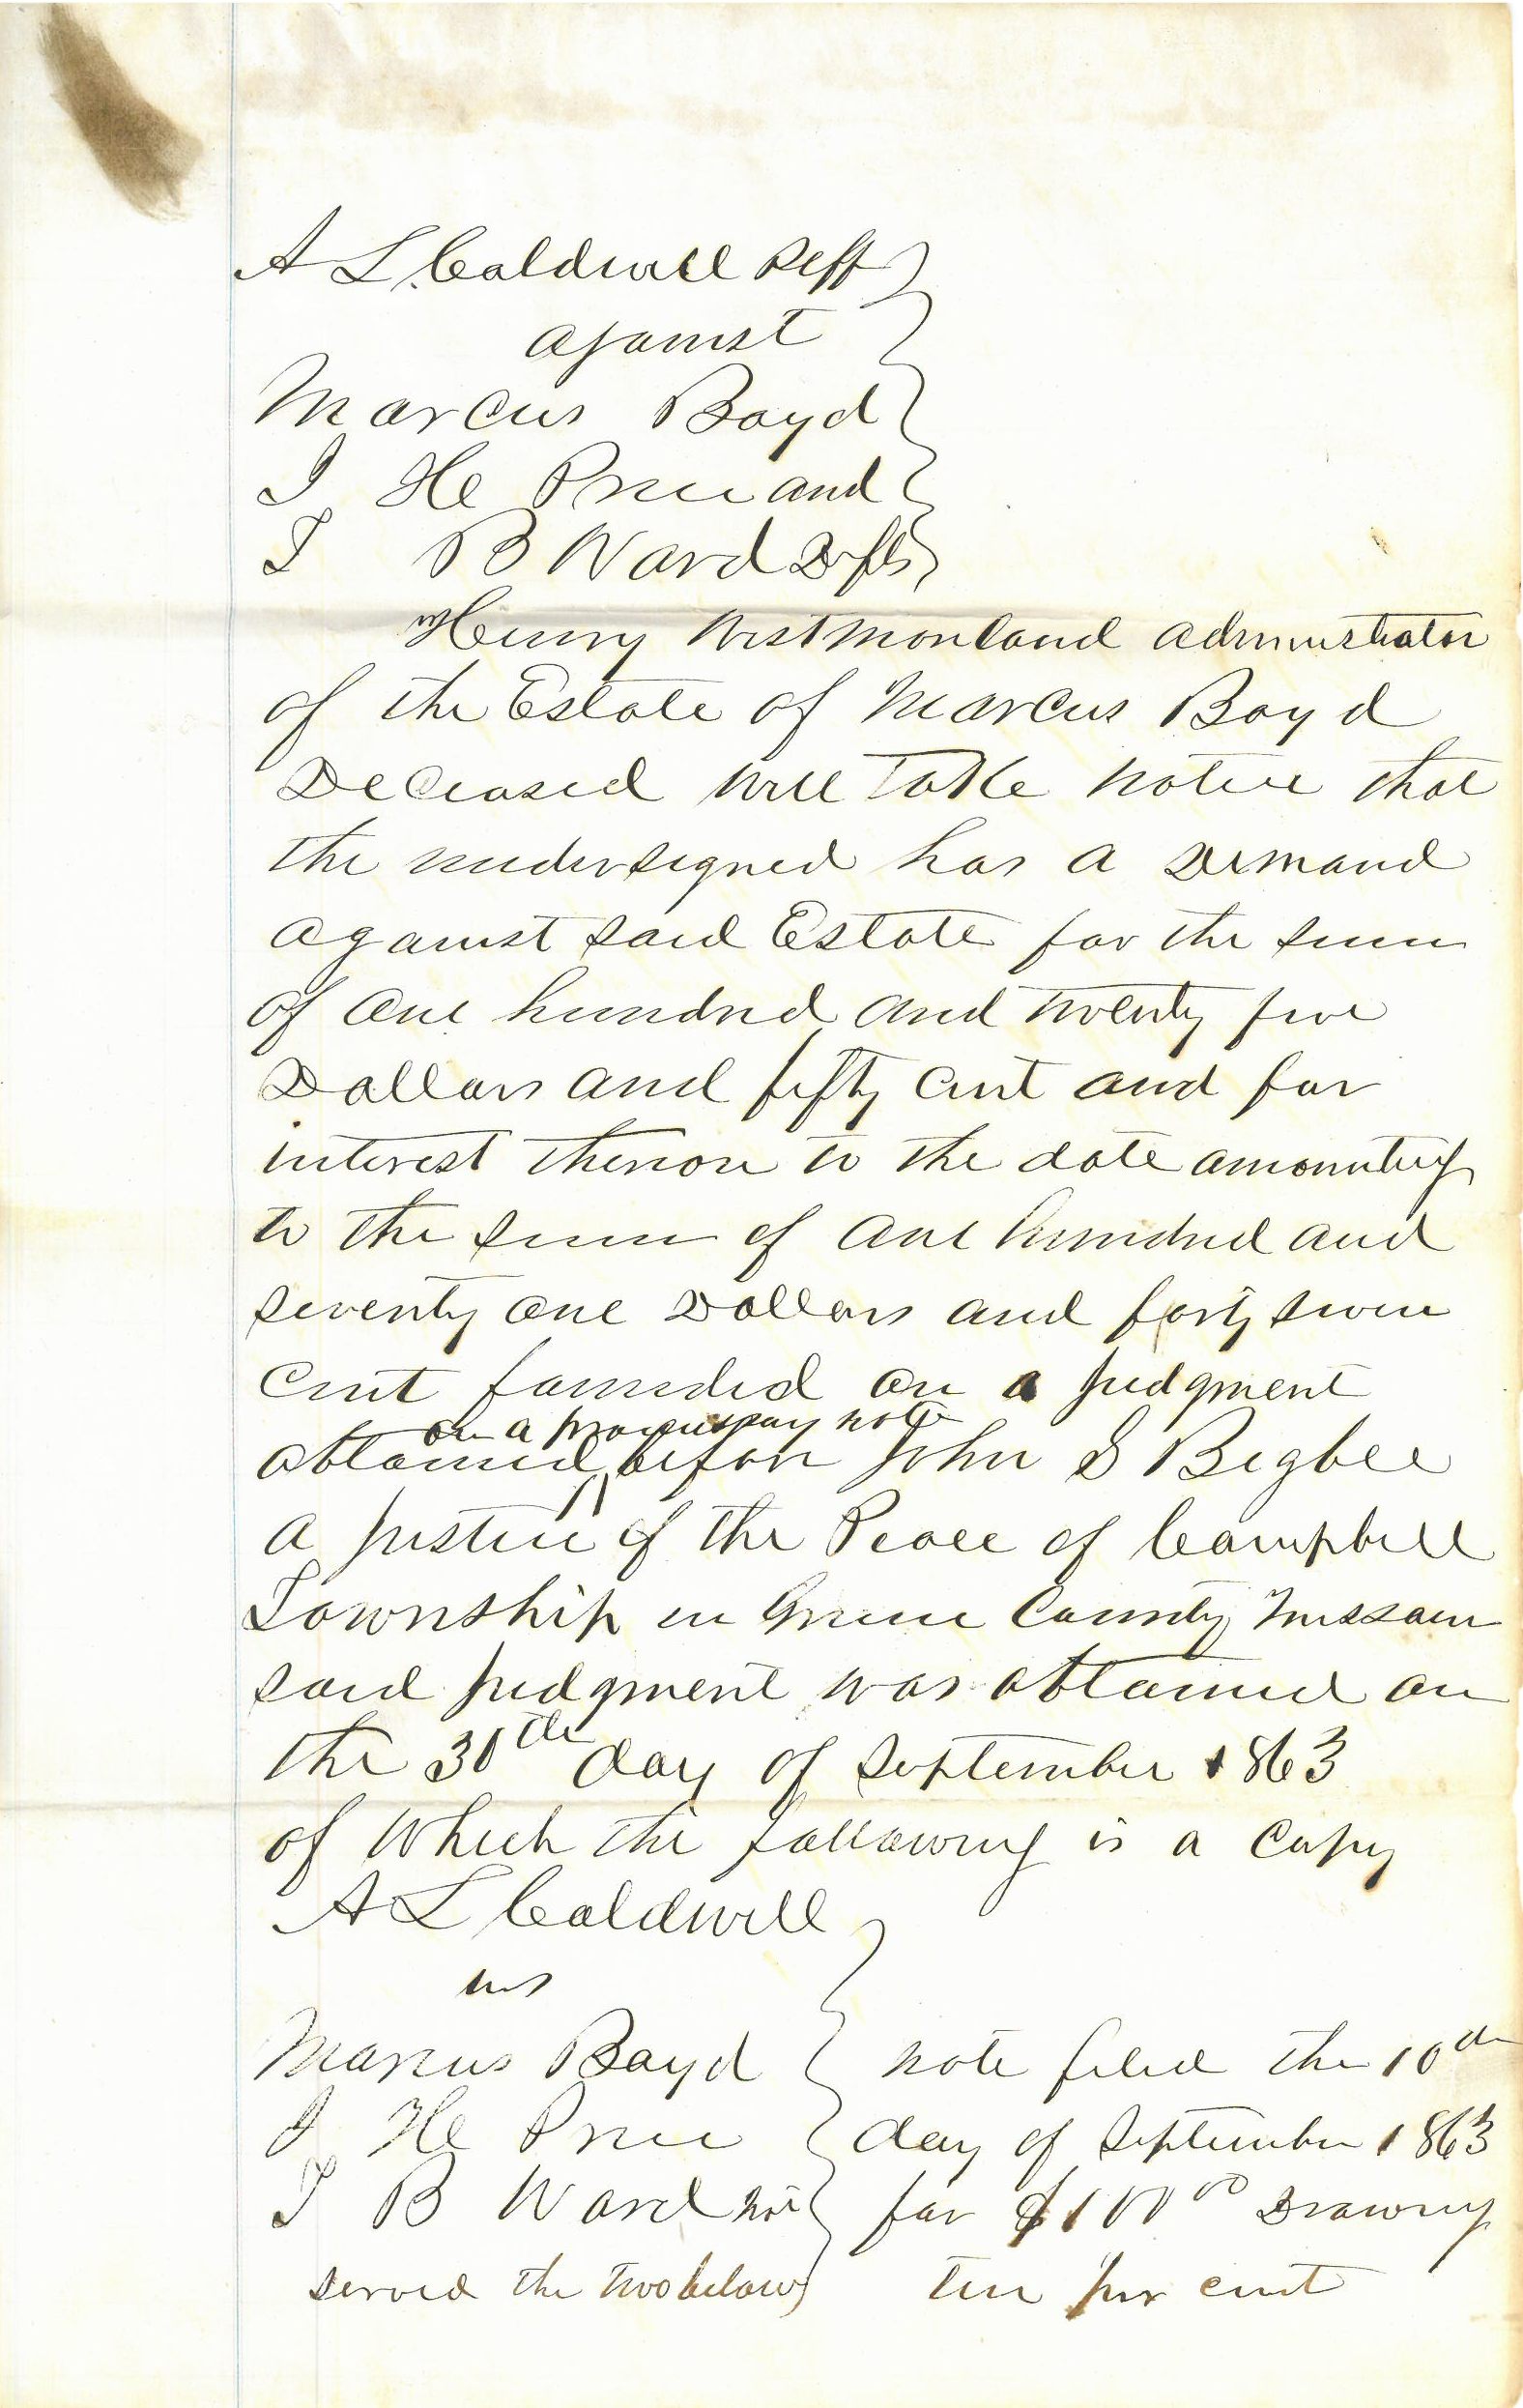 A L Caldwell Plff
against
Marcus Boyd
J H Price and
T B Ward Defts
Henry Westmorland administrator
of the Estate of Marcus Boyd
Deceased will Take notice that
the undersigned has a Demand
against said Estate for the sum
of one hundred and twenty five
Dollars and fifty cent and for
interest thereon to the date amounting
to the sum of one hundred and
seventy one Dollars and forty seven
cent founded on a judgment
on a promissory note
obtained before John S Bigbee
a Justice of the Peace of Campbell
Township in Greene County Missouri
said judgment was obtained on
the 30th day of September 1863
of which the following is a copy
A L Caldwell
vs
Marcus Boyd note filed the 10th
J H Price day of September 1863
T B Ward not for $100 00 Drawing
served the two below ten per cent